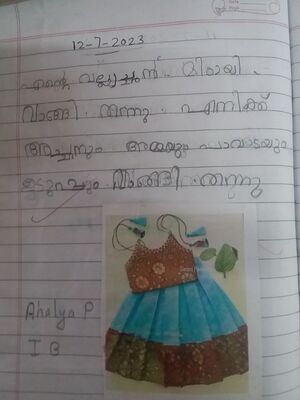 12-7-2023
എന്റെ വല്യച്ഛൻ മിഠായി
വാങ്ങി തന്നു എനിക്ക്
അച്ഛനും അമ്മയും പാവാടയും
ഉടുപ്പും വാങ്ങി തന്നു
Ahalya P
I B